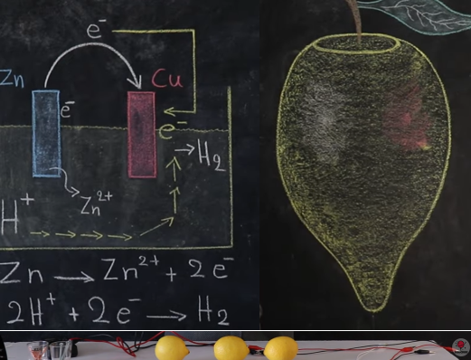 e⁻
Zn
Cu
e⁻
e⁻
H₂
Zn²⁺
H⁺
Zn → Zn²⁺ + 2e⁻
2H⁺ + 2e⁻ → H₂